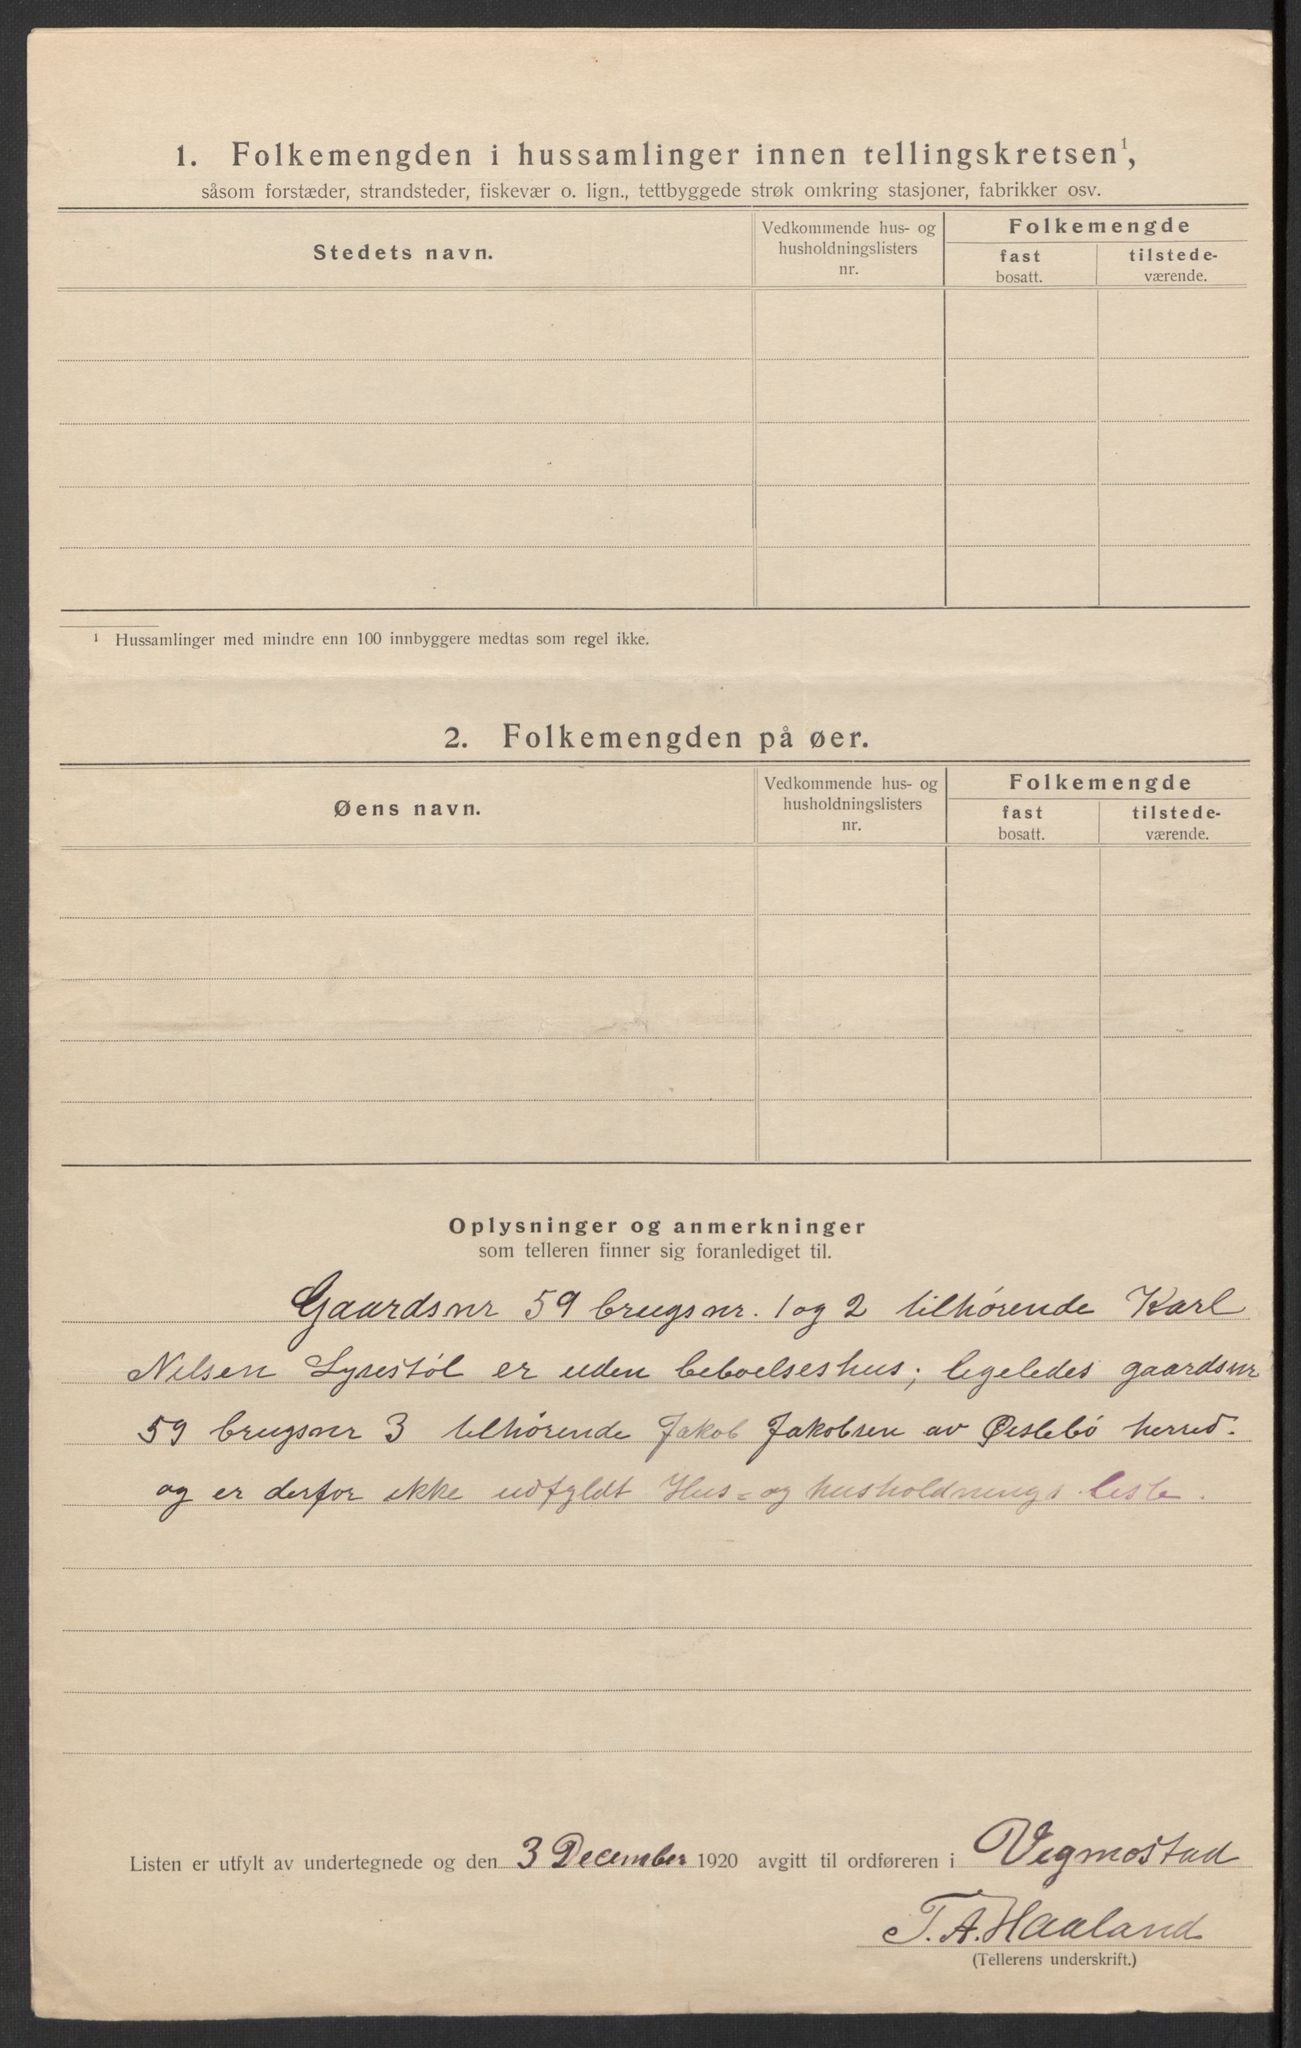 1. Folkemengden i hussamlinger innen tellingskretsen¹,
såsom forstæder, strandsteder, fiskevær o. lign., tettbyggede strøk omkring stasjoner, fabrikker osv.
Stedets navn.
Vedkommende hus- og
husholdningslisters
nr.
Folkemengde
fast
bosatt.
tilstede-
værende.
¹ Hussamlinger med mindre enn 100 innbyggere medtas som regel ikke.
2. Folkemengden på øer.
Øens navn.
Vedkommende hus- og
husholdningslisters
nr.
Folkemengde
fast
bosatt.
tilstede-
værende.
Oplysninger og anmerkninger
som telleren finner sig foranlediget til.
Gaardsnr 59 brugsnr. 1 og 2 tilhørende Karl
Nilsen Lyrestøl er uden beboelseshus; ligeledes gaardsnr
59 brugsnr 3 tilhørende Jakob Jakobsen av Øislebø herred.
og er derfor ikke udfyldt Hus= og husholdnings liste.
Listen er utfylt av undertegnede og den 3 December 1920 avgitt til ordføreren i Vegmostad
T. A. Haaland
(Tellerens underskrift.)